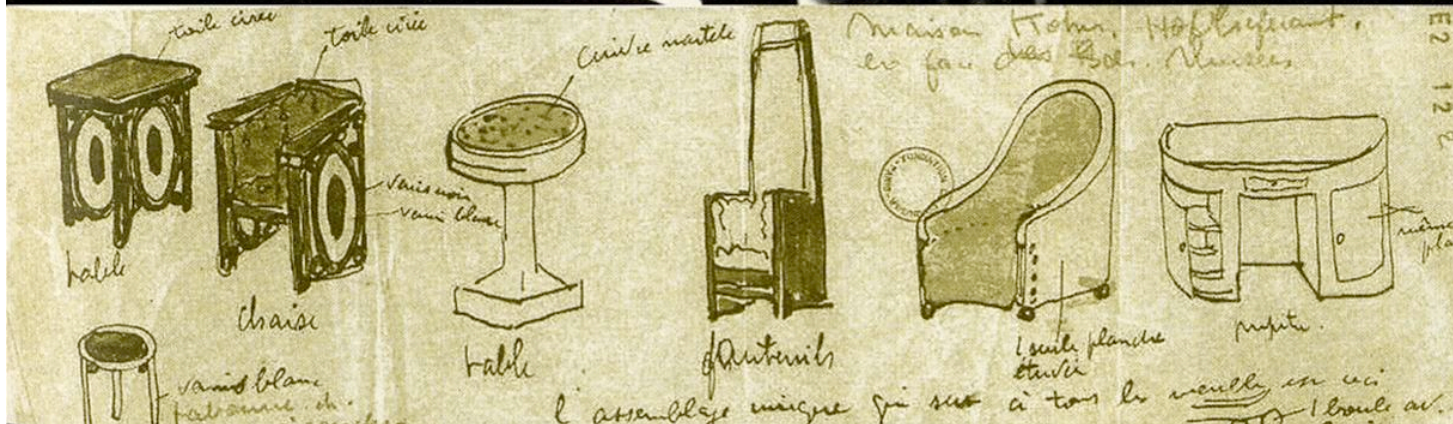 toile cirée
toile cirée
Cuivre martelé
maison Kohn,
en face des Musées
E2 12
FONDATION
vernis noir
vernis blanc
table
chaise
table
fauteuils
1 seule planche
étuvée
pupitre.
vernis blanc
l'assemblage unique qui sert à tous les meubles est ici
1 boule av.